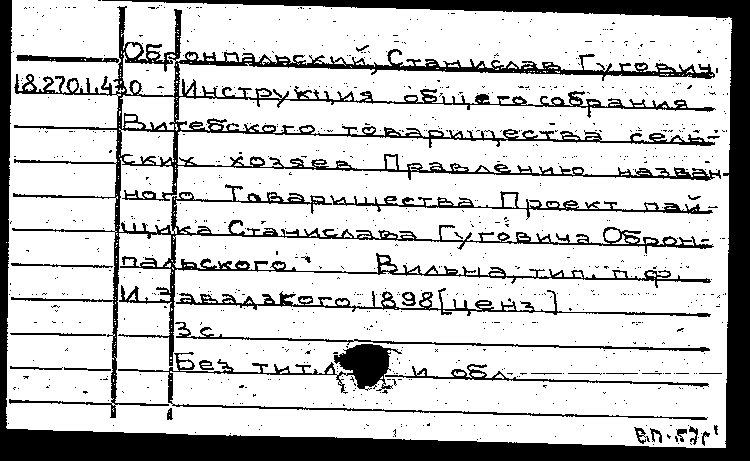 Обронпальский, Станислав Гугович.
18.270.1.430 Инструкция общего собрания
Витебского товарищества сель-
ских хозяев Правлению назван-
ного Товарищества. Проект пай-
щика Станислава Гуговича Оброн-
пальского. Вильна, тип. п.ф.
И. Завадзкого, 1898 [ценз.].
3 с.
Без тит. л. и обл.